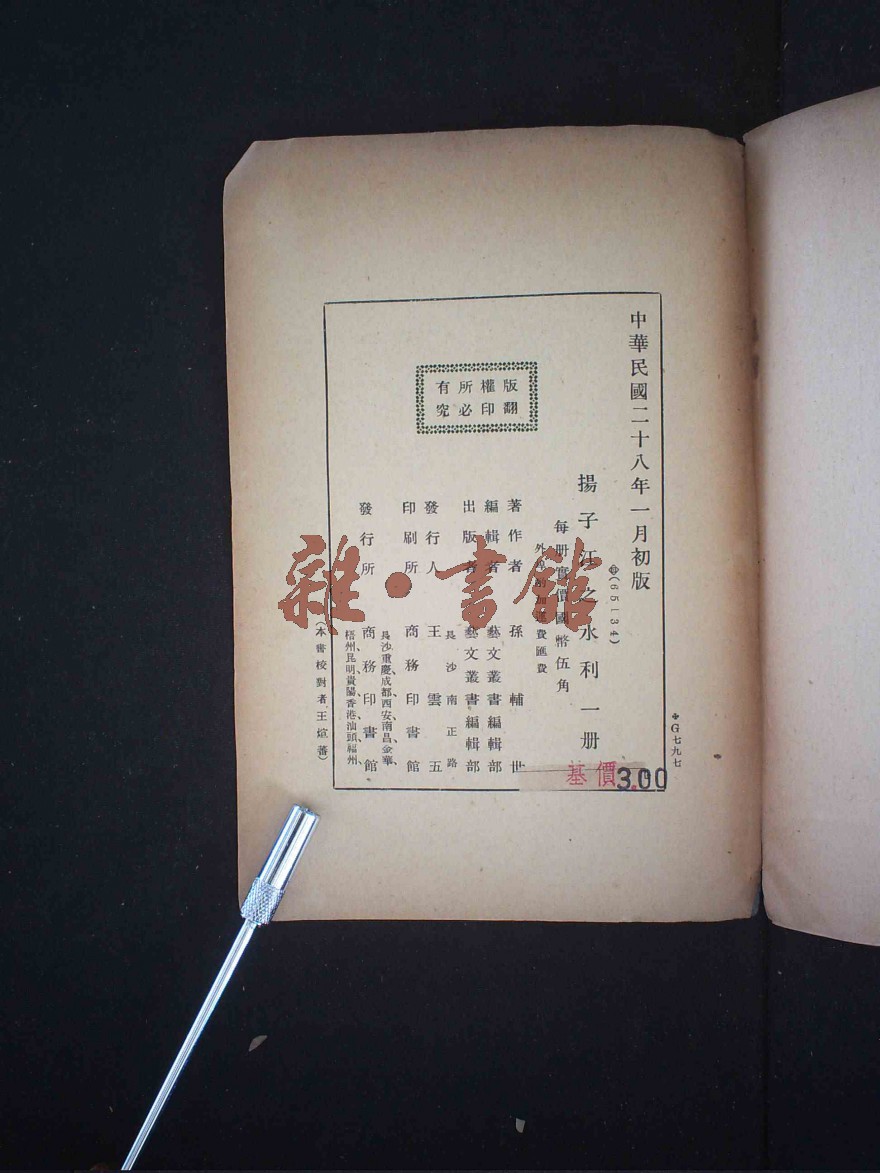 中華民國二十八年一月初版
(65134)
揚子江之水利一册
每册實價國幣伍角
外埠酌加運費匯費
著作者 孫輔世
編輯者 藝文叢書編輯部
出版者 藝文叢書編輯部
長沙南正路
發行人 王雲五
印刷所 商務印書館
長沙、重慶、成都、西安、南昌、金華、
發行所 商務印書館
梧州、昆明、貴陽、香港、汕頭、福州、
(本書校對者王煊蕃)
版權所有
翻印必究
G七九七
基價3.00
雜·書館